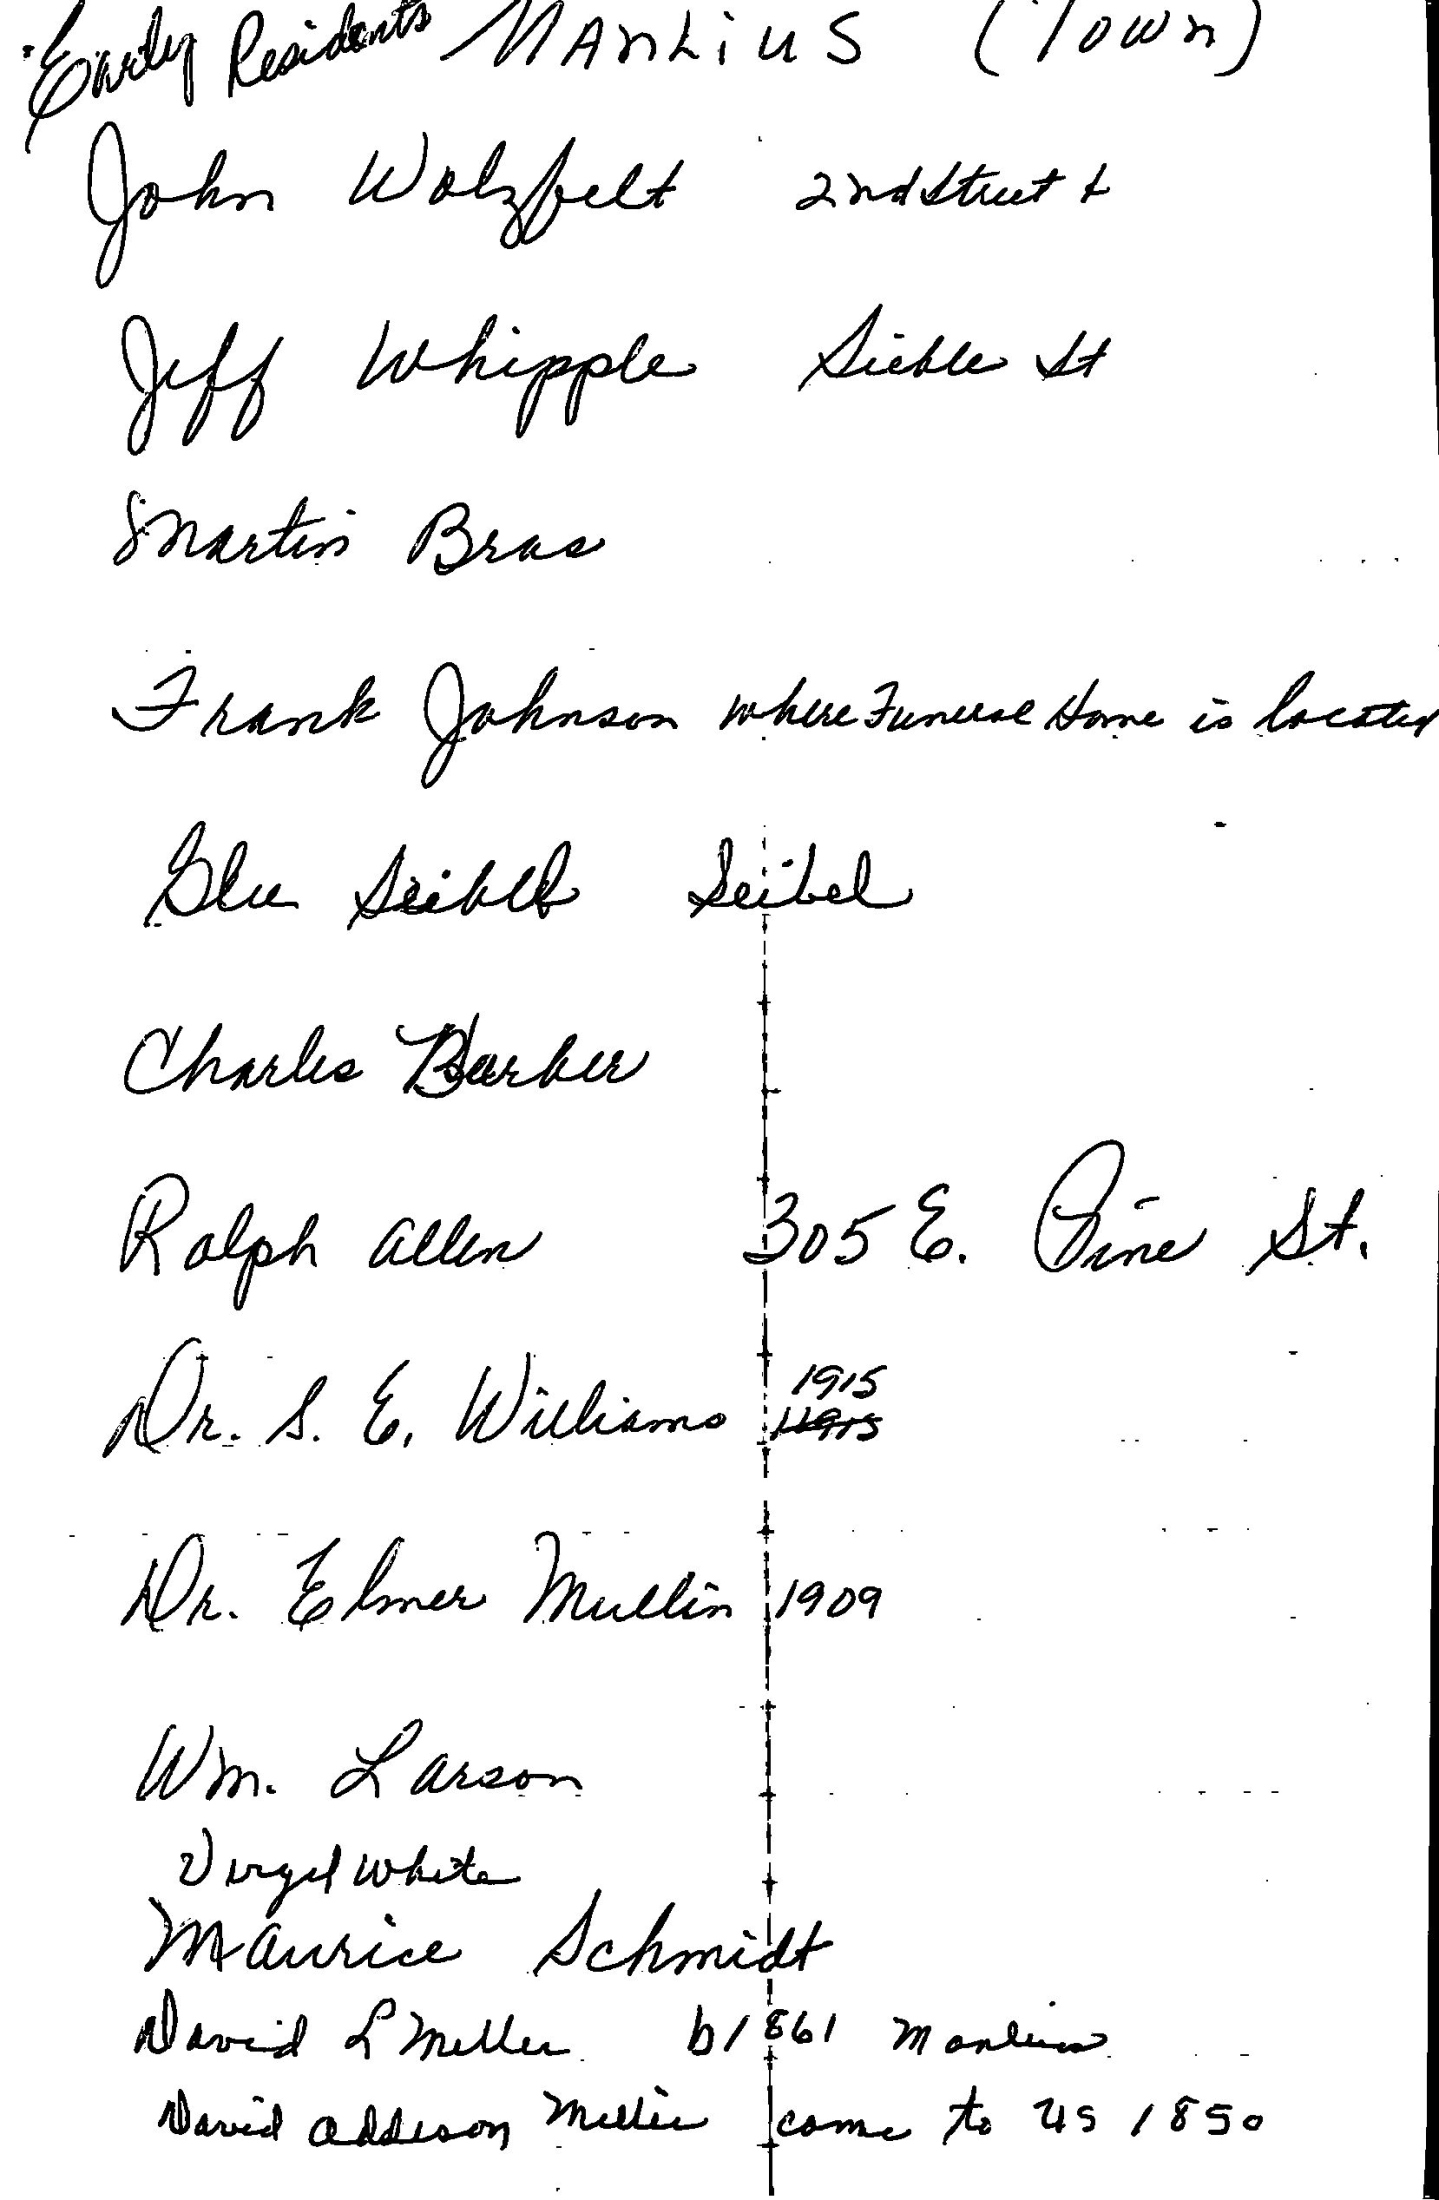 Early Residents Manlius (Town)
John Wolzfelt 2nd Street &
Jeff Whipple Sieble St
Martin Bras
Frank Johnson where Funeral Home is located
Seibel
Charles Barber
Ralph Allen 305 E. Pine St.
1915
Dr. S. E. Williams 11915
Dr. Elmer Mullin 1909
Wm. Larson
Virgil White
Maurice Schmidt
David L Miller b 1861 Manlius
David Addison Miller came to US 1850